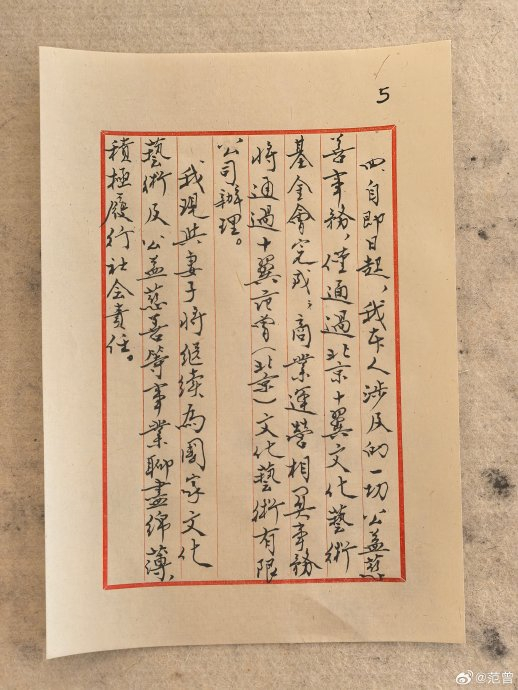 5
四、自即日起，我本人涉及的一切公益慈
善事務，僅通過北京十翼文化藝術
基金會完成；商業運營相関事務
将通過十翼范曾（北京）文化藝術有限
公司辦理。
我現與妻子将继续為國家文化
藝術及公益慈善等事業聊盡绵薄，
積極履行社会責任。
@范曾